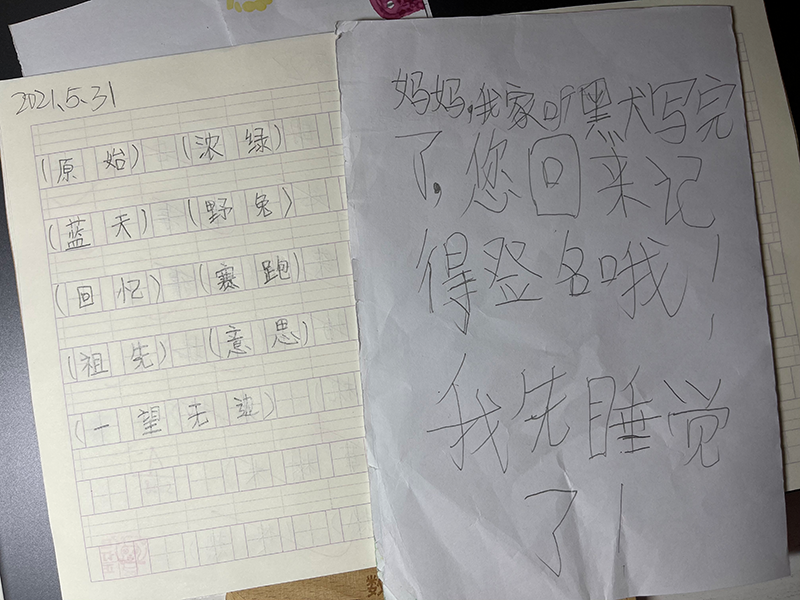 2021.5.31
(原始) (浓绿)
(蓝天) (野兔)
(回忆) (赛跑)
(祖先) (意思)
(一望无边)
妈妈,我家听黑犬写完
了,您回来记
得登名哦!
我先睡觉
了!